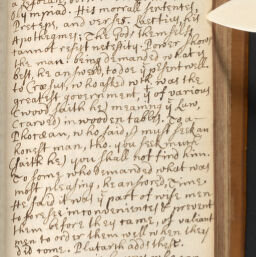 Olympiad. His morrall sentences,
Precepts, and verses. Laertius, his
Apothegmes; The Gods themselves
cannot resist necessity. Power shows
the man. being demanded what is
best, he answered, to doe ye present well.
to Croesus, who asked wch was the
greatest government, ye of various
wood (saith he) meaning ye Law,
Carved) in wooden tables. To a
Phocean, who said, I must seek an
honest man, tho. you seek much
(saith he) you shall not find him.
To some who demanded what was
most pleasing, he answered, Time
He said it was ye part of wise men
to foresee inconveniences & prevent
them before they came, of valiant
men to order them well when they
did come. Plutarch adds these.